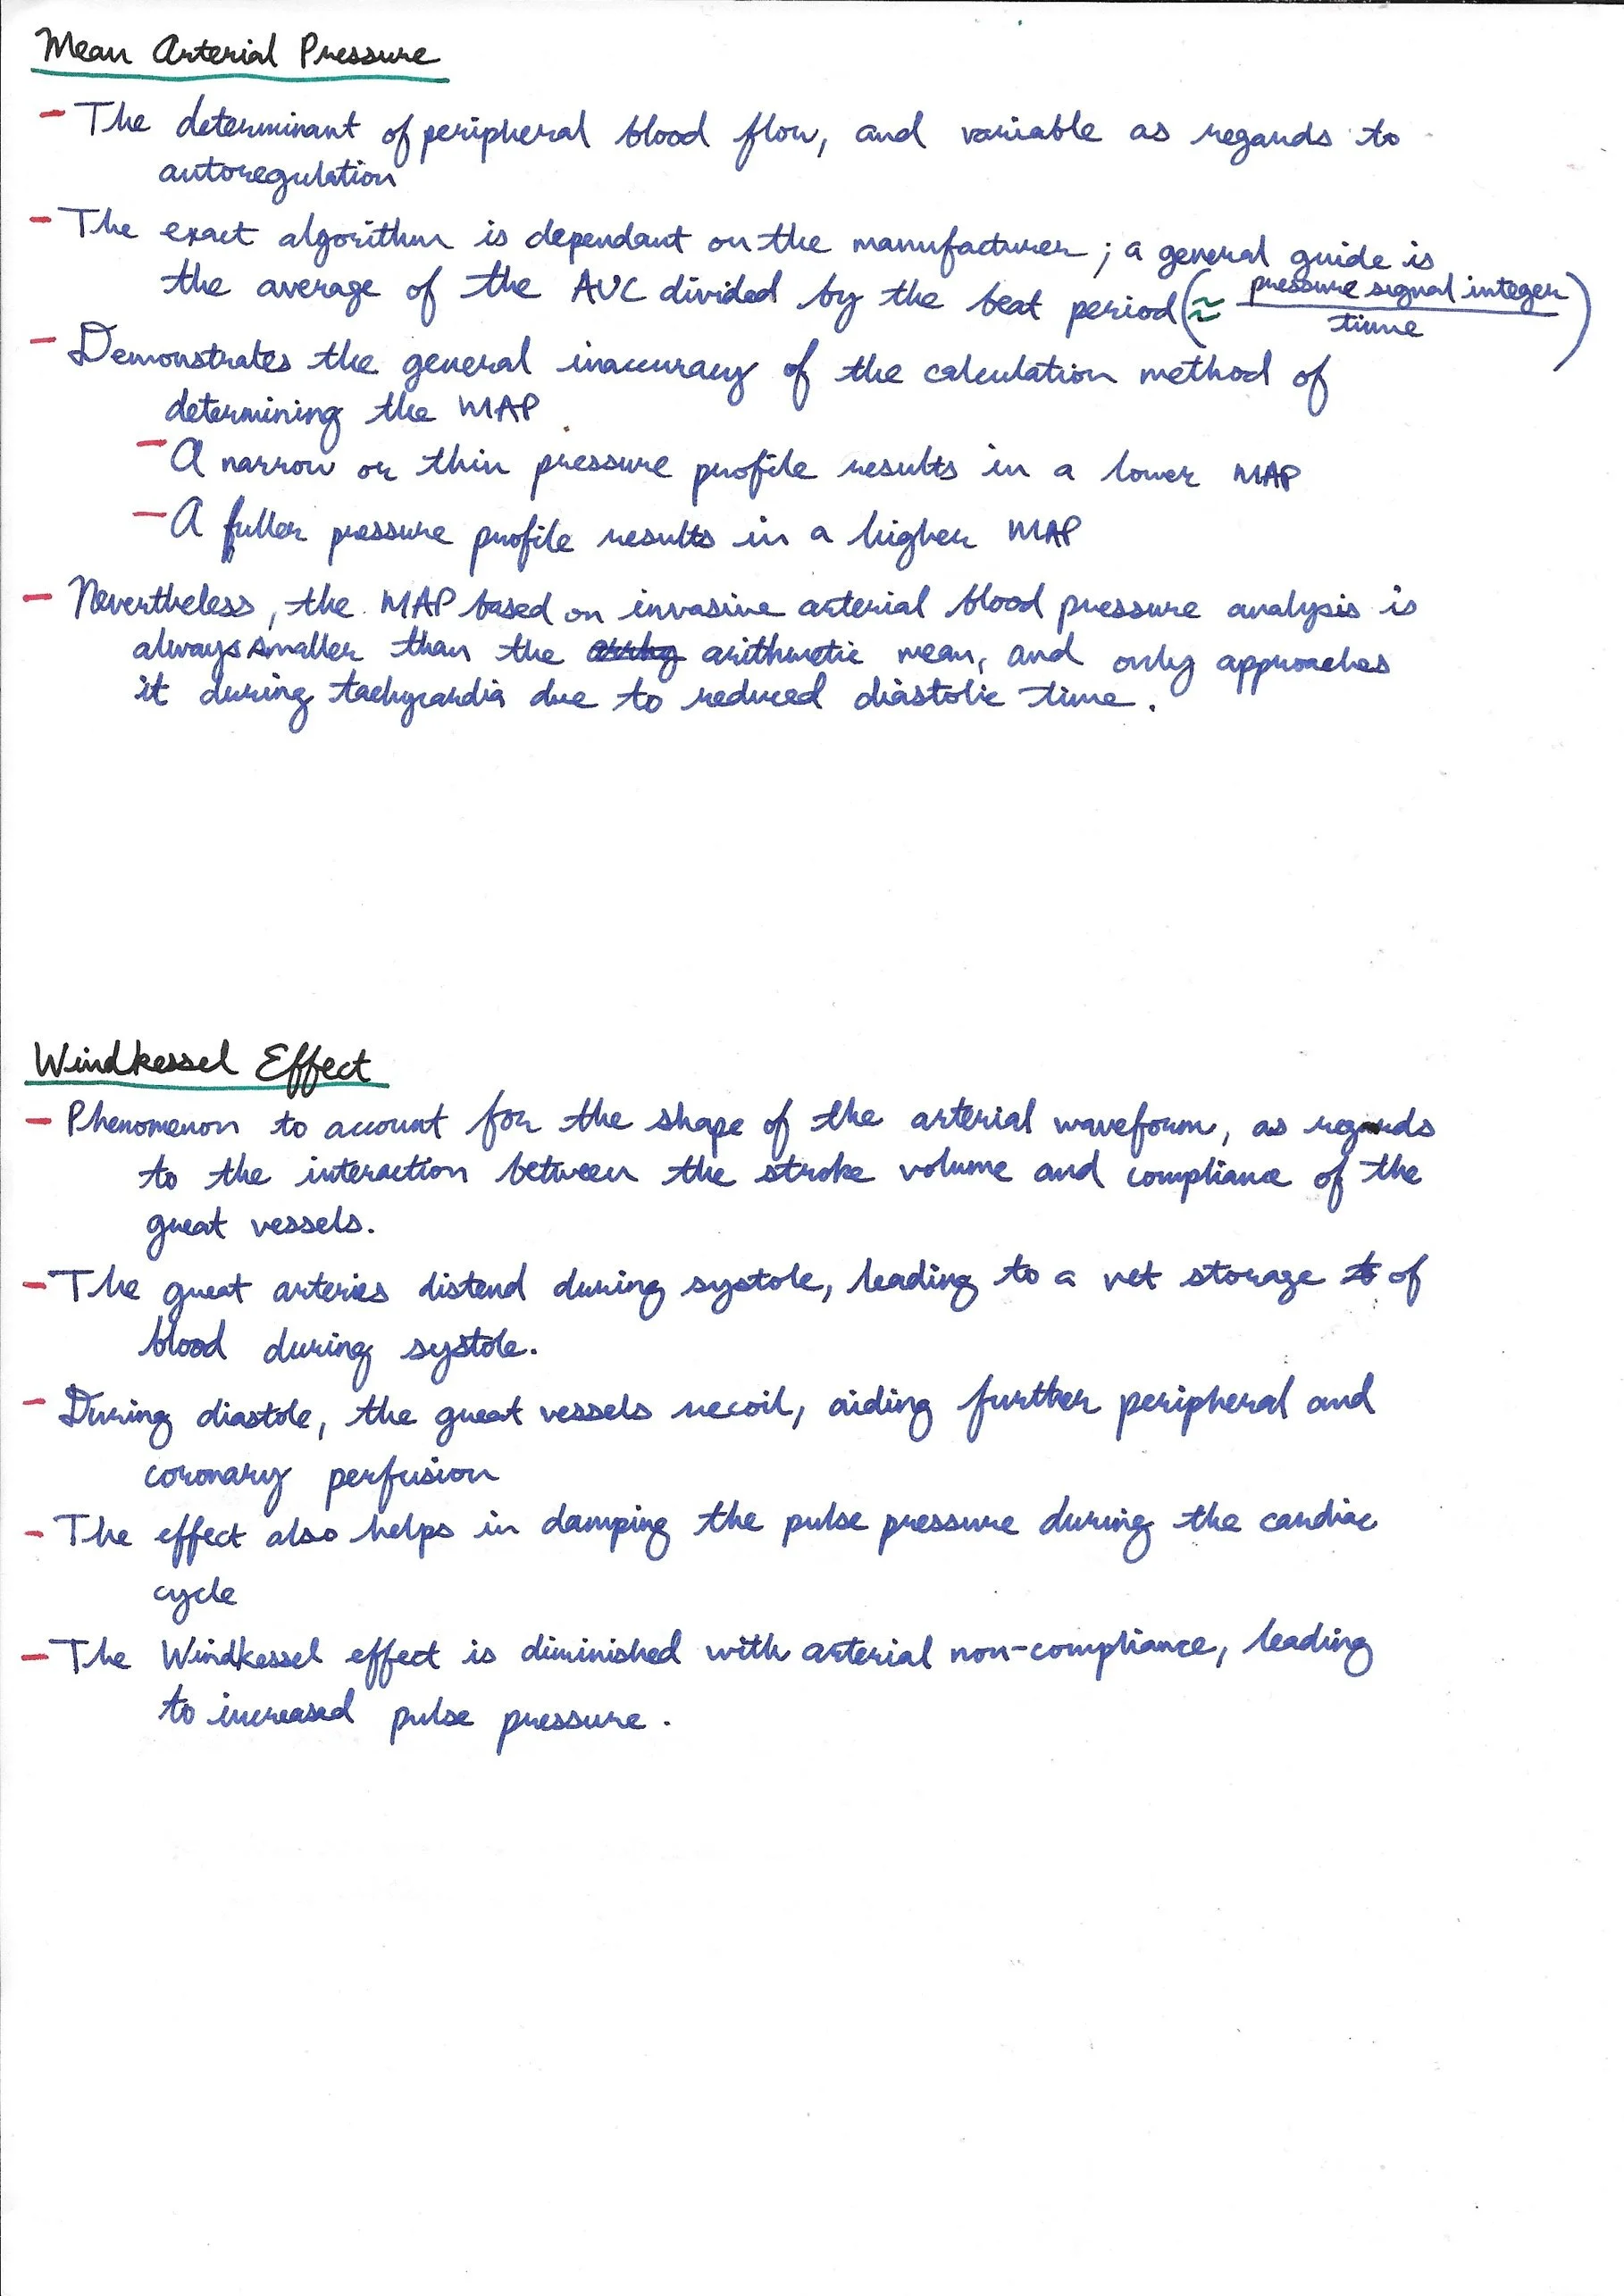 Mean Arterial Pressure
- The determinant of peripheral blood flow, and variable as regards to
autoregulation
- The exact algorithm is dependant on the manufacturer; a general guide is
the average of the AUC divided by the beat period (≈ pressure signal integer
time)
- Demonstrates the general inaccuracy of the calculation method of
determining the MAP
- A narrow or thin pressure profile results in a lower MAP
- A fuller pressure profile results in a higher MAP
- Nevertheless, the MAP based on invasive arterial blood pressure analysis is
always smaller than the arithmetic mean, and only approaches
it during tachycardia due to reduced diastolic time.
Windkessel Effect
- Phenomenon to account for the shape of the arterial waveform, as regards
to the interaction between the stroke volume and compliance of the
great vessels.
- The great arteries distend during systole, leading to a net storage of
blood during systole.
- During diastole, the great vessels recoil, aiding further peripheral and
coronary perfusion
- The effect also helps in damping the pulse pressure during the cardiac
cycle
- The Windkessel effect is diminished with arterial non-compliance, leading
to increased pulse pressure.